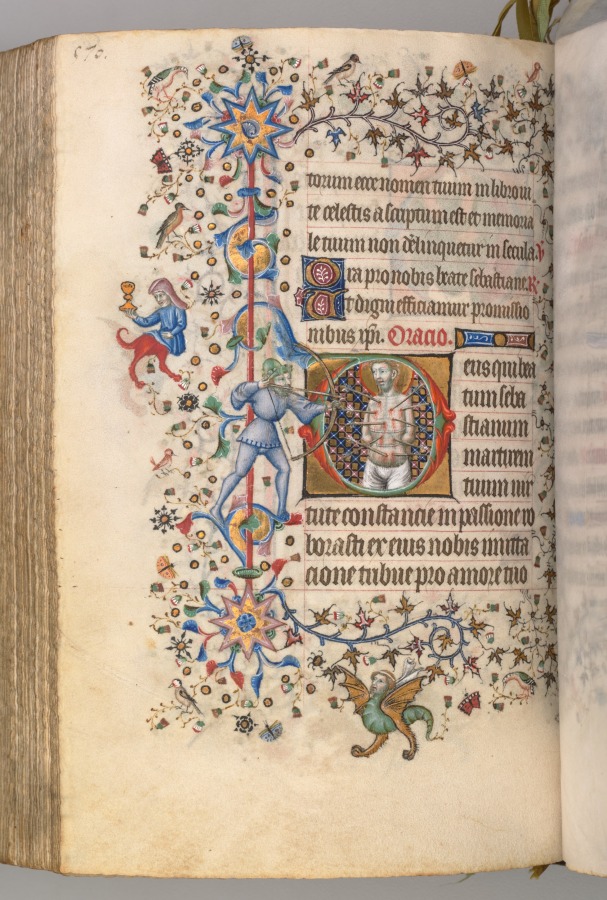 torum ecce nomen tuum in libro vi
te celestis ascriptum est et memoria
le tuum non delinquetur in secula. V
Ora pro nobis beate sebastiane. R
Ut digni efficiamur promissio
nibus xpi. Oracio.
Deus qui bea
tum seba
stianum
martirem
tuum vir
tute constancie in passione ro
borasti ex eius nobis imita
cione tribue pro amore tuo